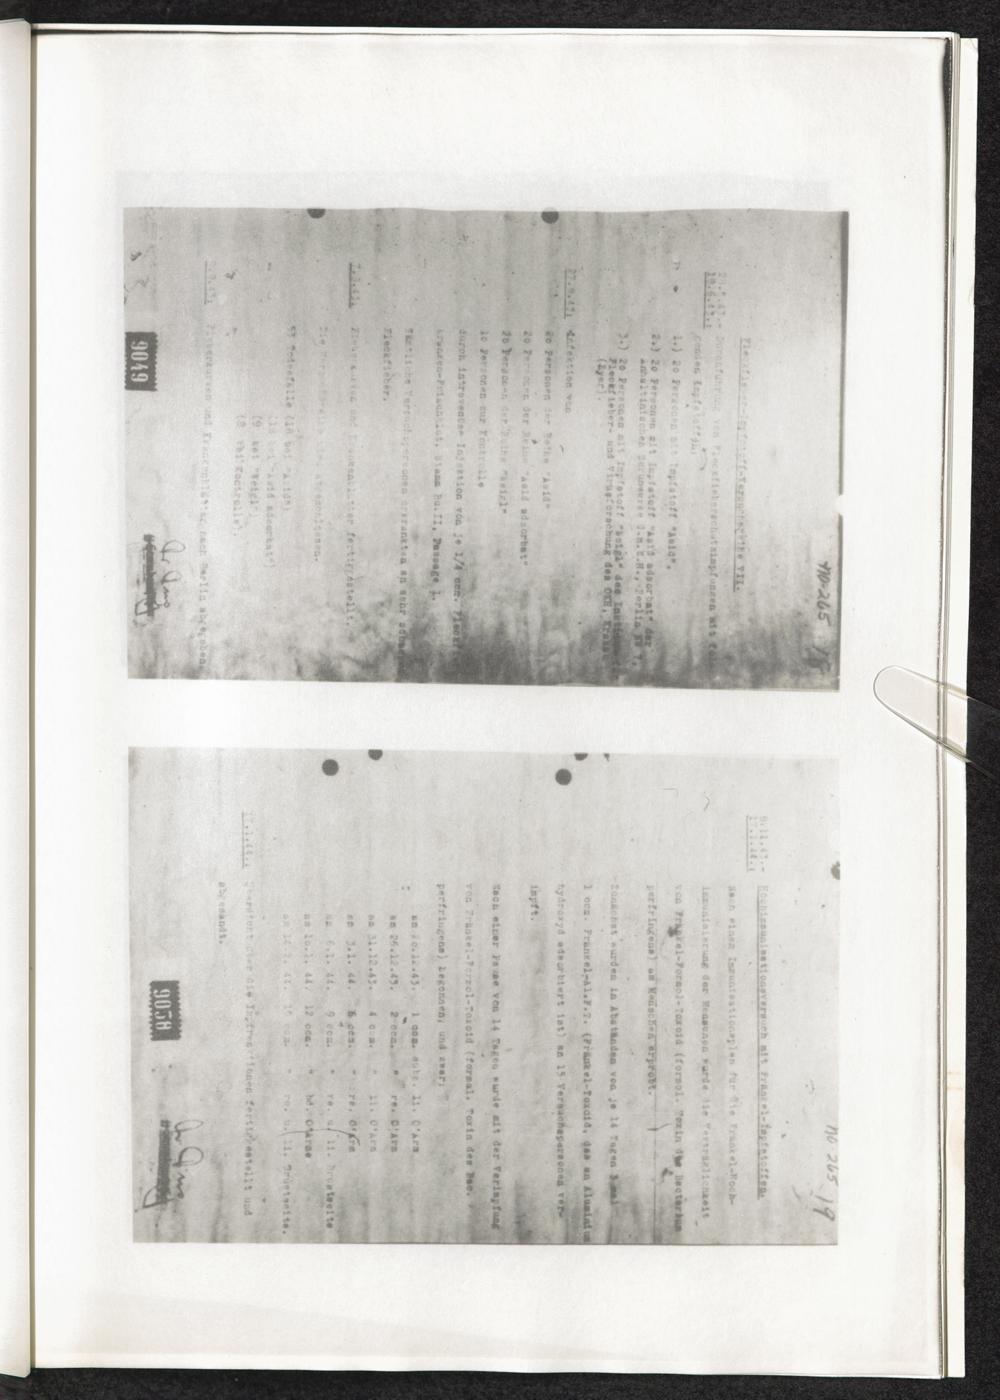 NO-265 15
Fleckfieber-Impfstoff-Versuchsreihe VII.
Durchführung von Fleckfieberschutzimpfungen mit
genden Impfstoffen:
1.) 20 Personen mit Impfstoff "Asid".
2.) 20 Personen mit Impfstoff "Asid adsorbat" der
Anhaltinischen Serumwerke G.m.b.H., Berlin
3.) 20 Personen mit Impfstoff "Weigl" des
Fleckfieber- und Virusforschung des OKH,
(Eyer).
Infektion von
20 Personen der Reihe "Asid"
20 Personen der Reihe "Asid adsorbat"
20 Personen der Reihe "Weigl"
10 Personen zur Kontrolle
durch intravenöse Injektion von je 1/4 ccm.
kranken-Frischblut, Stamm Bu.II, Passage
Sämtliche Versuchspersonen erkrankten an sehr
Fleckfieber.
Fieberkurven und Krankenblätter fertiggestellt.
Die Versuchsreihe ist abgeschlossen.
53 Todesfälle (18 bei "Asid")
(18 bei "Asid adsorbat")
(9 bei "Weigl")
(8 bei Kontrolle)
Fieberkurven und Krankenblätter nach Berlin abgegeben.
9049
NO 265 19
8.11.43.-
17.1.44.:
Hochimmunisationsversuch mit Fränkel-Impfstoffen.
Nach einem Immunisationsplan für die Fränkel-Hoch-
immunisierung der Menschen wurde die Verträglichkeit
von Fränkel-Formol-Toxoid (formol. Toxin des Bacterium
perfringens) am Menschen erprobt.
Zunächst wurden in Abständen von je 14 Tagen 3 mal
1 ccm. Fränkel-Al.F.T. (Fränkel-Toxoid, das an Aluminium
hydroxyd adsorbiert ist) an 15 Versuchspersonen ver-
impft.
Nach einer Pause von 14 Tagen wurde mit der Verimpfung
von Fränkel-Formol-Toxoid (formal. Toxin des Bac.
perfringens) begonnen, und zwar:
am 20.12.43. 1 ccm. subc. li. O'Arm
am 26.12.43. 2 ccm. " re. O'Arm
am 31.12.43. 4 ccm. " li. O'Arm
am 3.1. 44. 6 ccm. " re. O'Arm
am 6.1. 44. 9 ccm. " re. u. li. Brustseite
am 10.1. 44. 12 ccm. " bd. O'Arme
ccm. " re. u. li. Brustseite.
17.1.44.: Übersicht über die Impfreaktionen fertiggestellt und
abgesandt.
9050